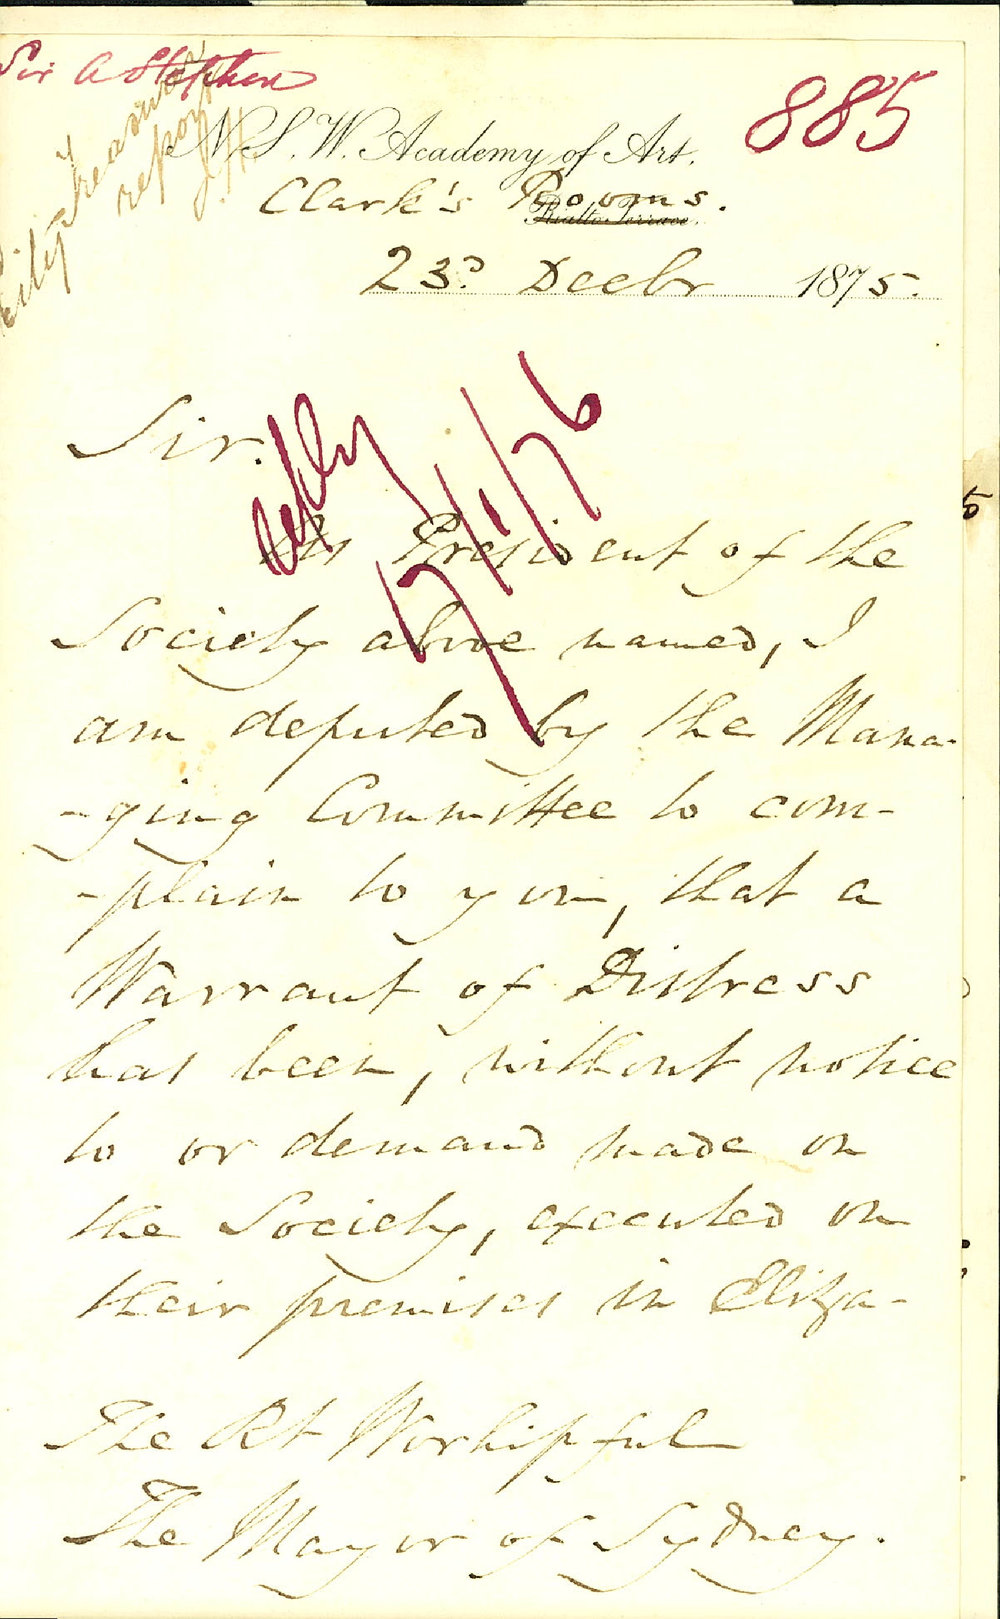 Sir A Stephen
885
City Treasurer
report
N. S. W. Academy of Art.
Clark's Rooms.
Rialto Terrace.
23d Decbr 1875.
Sir.
reply 17/1/76
As President of the
Society above named, I
am deputed by the Mana-
-ging Committee to com-
-plain to you, that a
Warrant of Distress
has been, without notice
to or demand made on
the Society, executed on
their premises in Eliza-
The Rt Worshipful
The Mayor of Sydney.